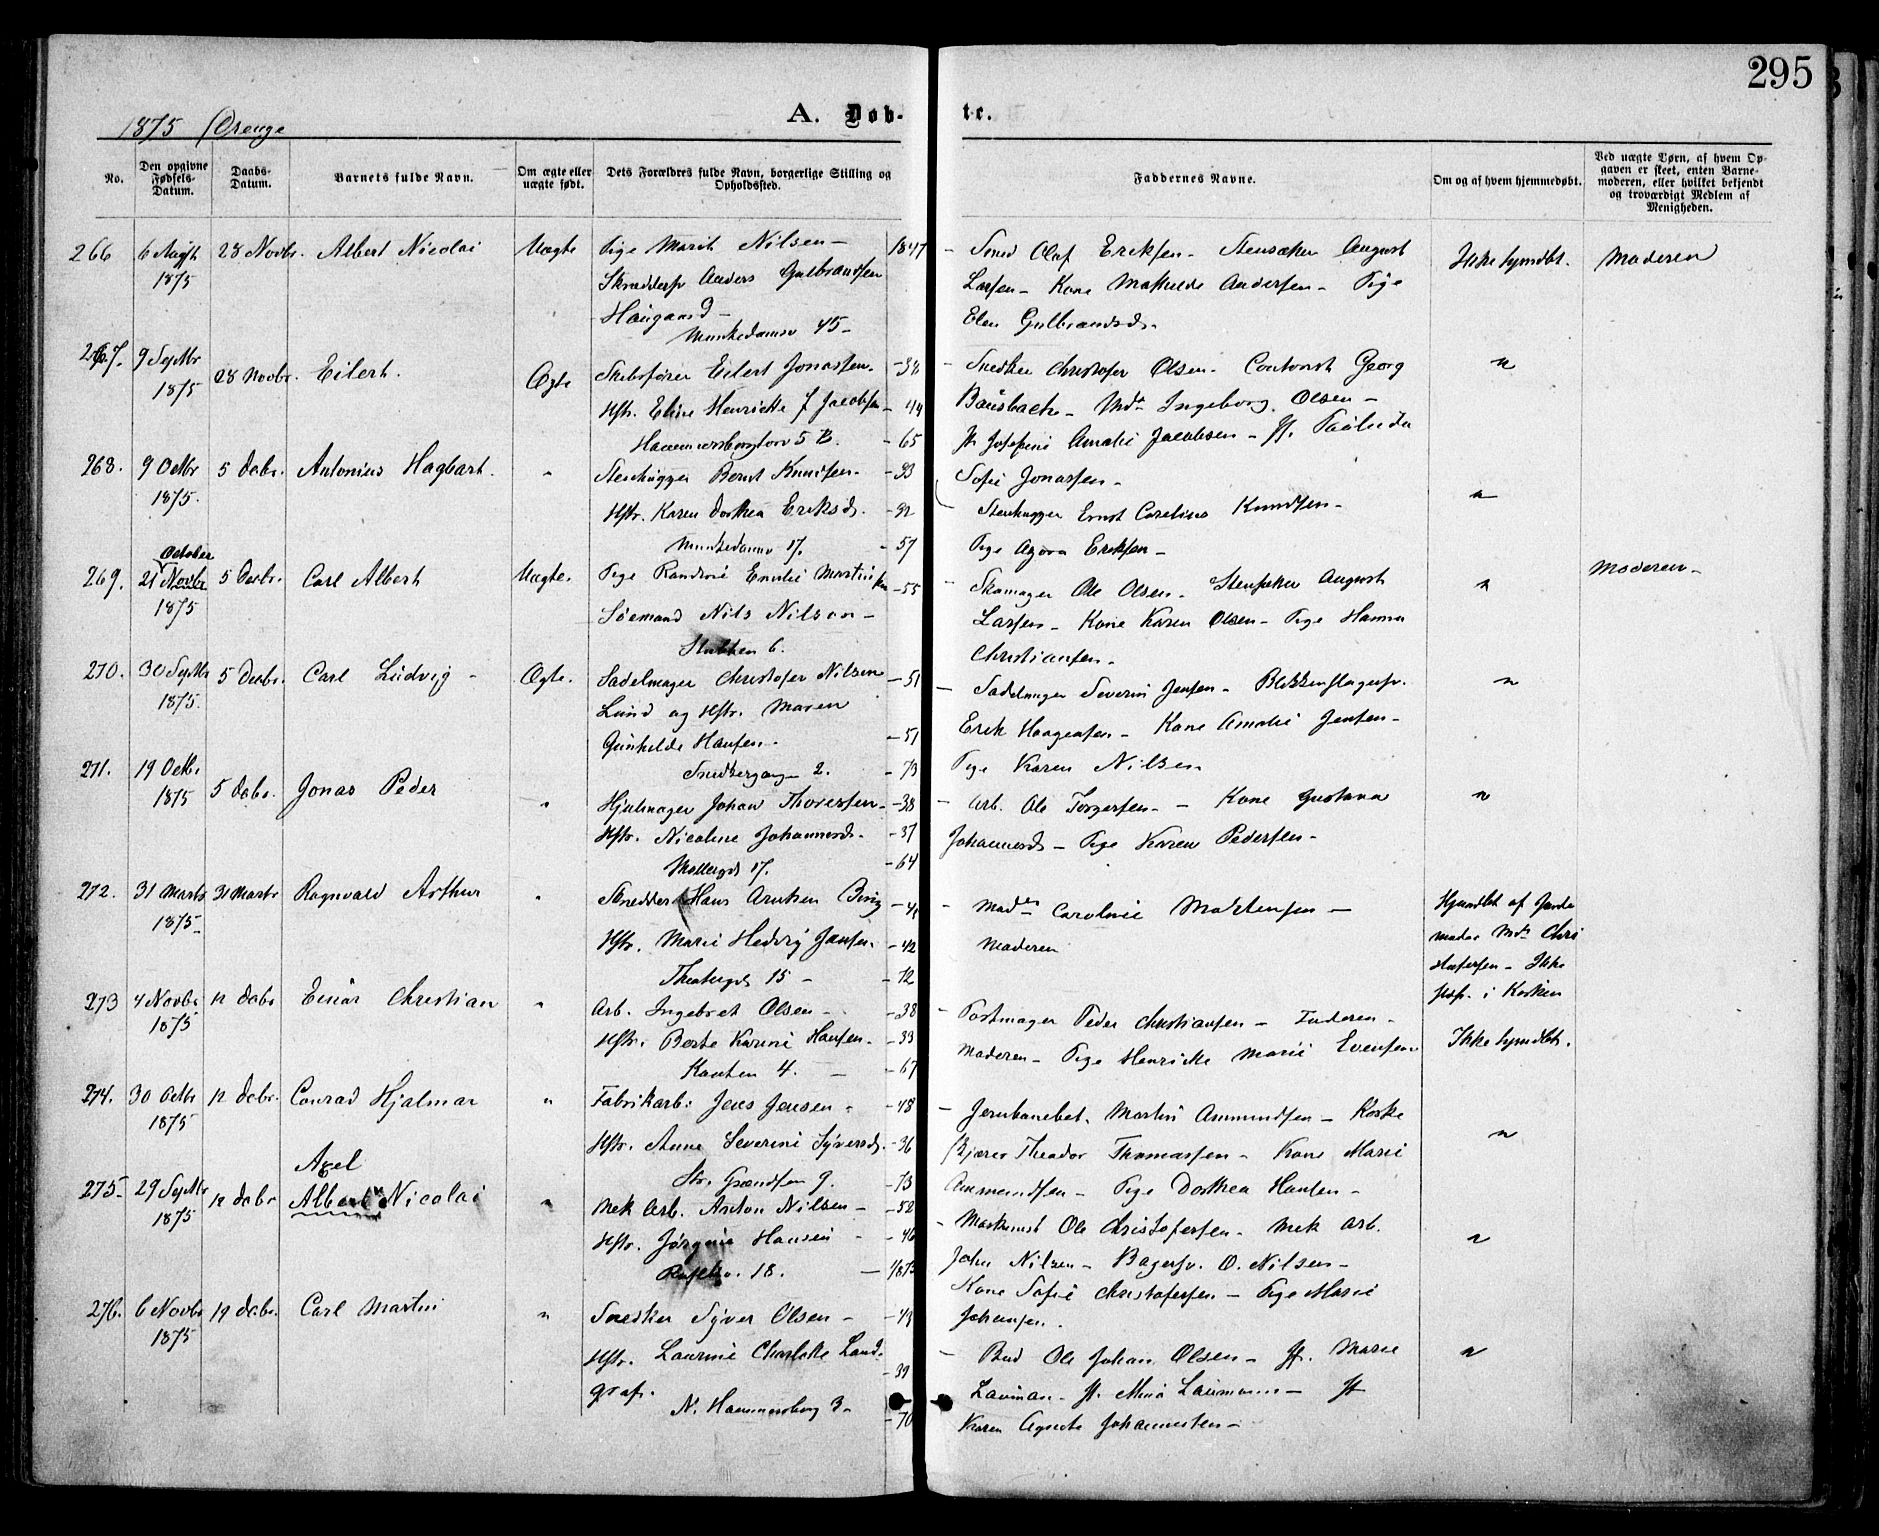 295
1875 Drenge
A. Døb-
te.
No.
Den opgivne Fødsels-Datum.
Daabs-Datum.
Barnets fulde Navn.
Om ægte eller uægte født.
Dets Forældres fulde Navn, borgerlige Stilling og Opholdssted.
Faddernes Navne.
Om og af hvem hjemmedøbt.
Ved uægte Børn, af hvem Opgaven er skeet, enten Barnemoderen, eller hvilket bekjendt og troværdigt Medlem af Menigheden.
266 6 Augst 1875 28 Novbr. Albert Nicolai Uægte
Pige Marit Nilsen - 1847
Skrædersv Anders Gulbrandsen
Haugaard -
Munkedamsv 45 -
Smed Olaf Eriksen - August
Larsen - Kone Mathilde Andersen - Pige
Elen Gulbrandsd.
Ikke hjmdbt. Moderen
267. 9 Septbr 1875 28 Novbr. Eilert. Ægte
Skibsfører Eilert Jonassen - 38
Hstr. Eline Henriette f Jacobsen - 44
Hammersborgtorv 5 B. - 65
Snedker Christofer Olsen - Contorist Georg
Bausbach - Md. Ingeborg Olsen -
Jf. Josefine Amalie Jacobsen - Jf.
Sofie Jonassen -
"
268. 9 Octbr 1875. 5 Dcbr. Antonius Hagbart. "
Stenhugger Bernt Knudsen - 33
Hstr. Karen Dorthea Eriksd. - 32
Munkedamsv 17. - 57
Stenhugger Ernst Carelius Knudsen -
Pige Agora Eriksen -
"
269. October
21 Novbr 1875 5 Decbr. Carl Albert Uægte.
Pige Randine Emilie Martinsen - 55
Sømand Nils Nilsen -
6.
Skomager Ole Olsen - August
Larsen - Kone Karen Olsen - Pige Hanna
Christiansen -
" Moderen -
270. 30 Septbr 1875. 5 Decbr. Carl Ludvig - Ægte.
Sadelmager Christofer Nilsen - 51
Lund og Hstr. Maren
Gunhilde Hansen - - 51
Snedkergangen 2. - 73
Sadelmager Severin Jensen - Blikkenslagersv.
Erik Haagensen - Kone Amalie Jensen -
Pige Karen Nilsen
"
271. 19 Octbr 1875 5 Dcbr. Jonas Peder "
Hjulmager Johan Thoresen - 38
Hstr. Nicoline Johannesd. - 37
Møllergd 17. - 64
Arb. Ole Torgersen - Kone Gustava
Johannesd - Pige Karen Pedersen -
"
272. 31 Marts 1875 - 31 Marts Ragnvald Arthur "
Skrædder Hans Arntzen Bing
Hstr. Marie Hedvig Jansen. - 42
Theatergd 15 - - 72
Madm Caroline Mortensen -
Moderen
Hjmdbt af Jordemoder Md. Christofersen - Ikke
præs. i Kirken
273 4 Novbr 1875 12 Dcbr Einar Christian "
Arb. Ingebret Olsen - - 38
Hstr. Berte Karine Hansen - 33
Kanten 4. - - 67
Postmager Peder Christiansen - Faderen -
Moderen - Pige Henrikke Marie Evensen
Ikke hjmdbt.
274. 30 Octbr 1875 12 Dcbr. Conrad Hjalmar "
Fabrikarb. Jens Jensen - - 48
Hstr. Anne Severine Syversd. - 36
Str. Grændsen 9. - 73
Jernbanebet. Martin Ammundsen - Kudsk
Theodor Thomassen - Kone Marie
Ammundsen - Pige Dorthea Hansen -
"
275 29 Septbr 1875 12 Dcbr Axel
Albert Nicolai "
Mek Arb. Anton Nilsen - - 52
Hstr. Jørgine Hansen - - 46
18. - 1873
Maskinist Ole Christofersen - Mek Arb.
John Nilsen - Bagersv. O. Nilsen -
Kone Sofie Christofersen - Pige Marie
Johansen.
"
276. 6 Novbr 1875 19 Dcbr. Carl Martin "
Snedker Syver Olsen - - 43
Hstr. Laurine Charlotte Land-
graf. - 39
N. Hammersborg 3 - - 70
Bud Ole Johan Olsen - Jf. Marie
Lauman - Jf. Mina Laumann - Jf
Karen Agnete Johannesen -
"